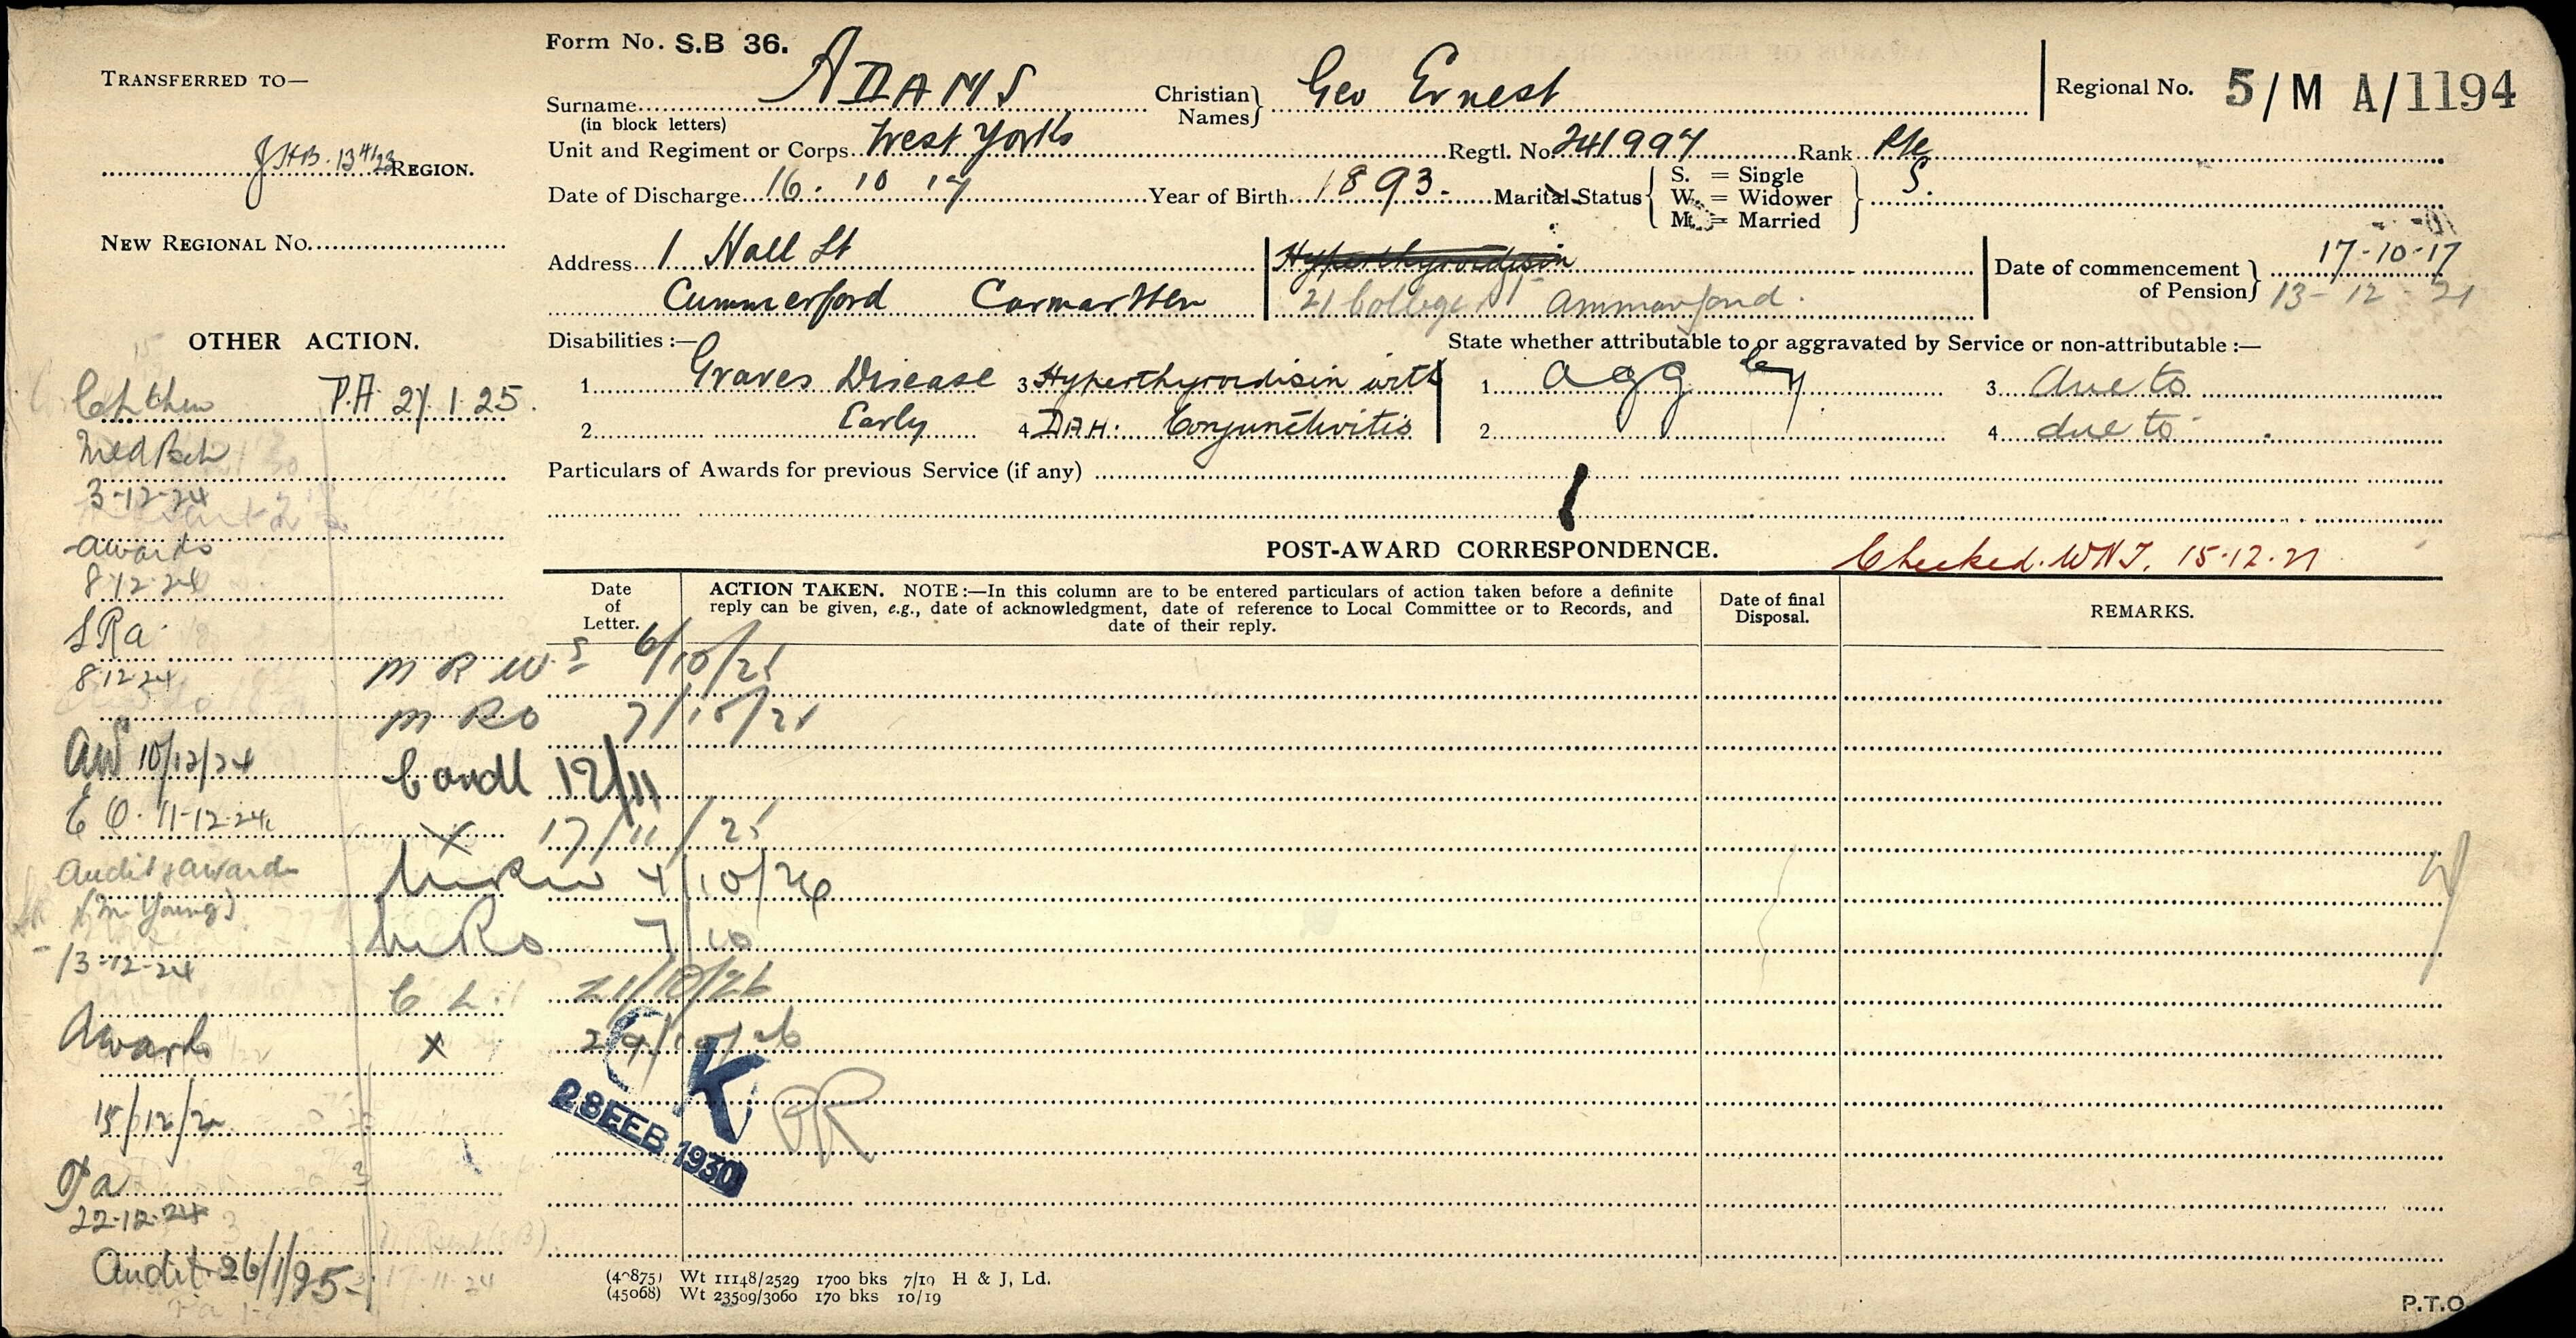 Form No. S.B 36.
TRANSFERRED TO—
REGION.
NEW REGIONAL No.
Surname ADAMS
(in block letters)
Christian Names Geo Ernest
Regional No. 5/M A/1194
Unit and Regiment or Corps West Yorks Regtl. No. 241997 Rank Pte
Date of Discharge 16. 10 17 Year of Birth 1893. Marital Status S. = Single W. = Widower M. = Married S.
Address 1 Hall St
Cummerford Carmarthen
Hyperthyroidism
21 College St Ammanford.
Date of commencement of Pension 17-10-17
13-12-21
Disabilities :—
State whether attributable to or aggravated by Service or non-attributable :—
1. Graves Disease 3. Hyperthyroidism with 1. agg by 3. due to
2. Early 4. D.A.H. Conjunctivitis 2. 4. due to
Particulars of Awards for previous Service (if any)
POST-AWARD CORRESPONDENCE.
Checked. W.N.J. 15.12.21
Date of Letter.
ACTION TAKEN. NOTE :—In this column are to be entered particulars of action taken before a definite
reply can be given, e.g., date of acknowledgment, date of reference to Local Committee or to Records, and
date of their reply.
Date of final Disposal.
REMARKS.
OTHER ACTION.
P.A 27.1.25.
3-12-24
Awards
8.12.24
8 12 24
10/12/24
E O. 11-12-24
Audit & award
(Mr Young)
13-12-24
Awards
15/12/2
22.12.24
Audit 26/1/25
M R W.S 6/10/25
M R O 7/10/25
12/11
X 17/11/25
4/10/26
7/10
C L. 21/10/26
X 29/10/26
K
28 FEB 1930
PR
(40875) Wt 11148/2529 1700 bks 7/19 H & J, Ld.
(45068) Wt 23509/3060 170 bks 10/19
P.T.O